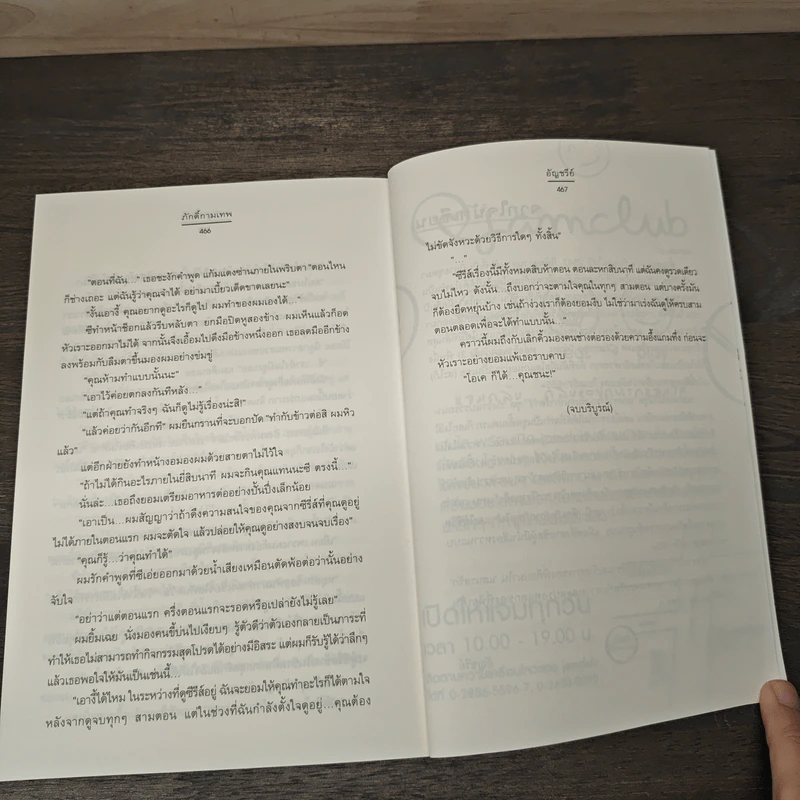 ภักดิ์กามเทพ
466
"ตอนที่ฉัน…" เธอชะงักคำพูด แก้มแดงซ่านภายในพริบตา "ตอนไหน
ก็ช่างเถอะ แต่ฉันรู้ว่าคุณจำได้ อย่ามาเบี้ยวเด็ดขาดเลยนะ"
"งั้นเอางี้ คุณอยากดูอะไรก็ดูไป ผมทำของผมเองได้…"
ซีทำหน้าช็อกแล้วรีบหลับตา ยกมือปิดหูสองข้าง ผมเห็นแล้วก็อด
หัวเราะออกมาไม่ได้ จากนั้นจึงเอื้อมไปดึงมือข้างหนึ่งออก เธอลดมืออีกข้าง
ลงพร้อมกับลืมตาขึ้นมองผมอย่างข่มขู่
"คุณห้ามทำแบบนั้นนะ"
"เอาไว้ค่อยตกลงกันทีหลัง…"
"แต่ถ้าคุณทำจริงๆ ฉันก็ดูไม่รู้เรื่องน่ะสิ!"
"แล้วค่อยว่ากันอีกที" ผมยืนกรานที่จะบอกปัด "ทำกับข้าวต่อสิ ผมหิว
แล้ว"
แต่อีกฝ่ายยังทำหน้างอมองผมด้วยสายตาไม่ไว้ใจ
"ถ้าไม่ได้กินอะไรภายในยี่สิบนาที ผมจะกินคุณแทนนะซี ตรงนี้…"
นั่นล่ะ…เธอถึงยอมเตรียมอาหารต่ออย่างปั้นปึ่งเล็กน้อย
"เอาเป็น…ผมสัญญาว่าถ้าดึงความสนใจของคุณจากซีรีส์ที่คุณดูอยู่
ไม่ได้ภายในตอนแรก ผมจะตัดใจ แล้วปล่อยให้คุณดูอย่างสงบจนจบเรื่อง"
"คุณก็รู้…ว่าคุณทำได้"
ผมรักคำพูดที่ซีเอ่ยออกมาด้วยน้ำเสียงเหมือนตัดพ้อต่อว่านั้นอย่าง
จับใจ
"อย่าว่าแต่ตอนแรก ครึ่งตอนแรกจะรอดหรือเปล่ายังไม่รู้เลย"
ผมยิ้มเฉย นั่งมองคนขี้บ่นไปเงียบๆ รู้ตัวดีว่าตัวเองกลายเป็นภาระที่
ทำให้เธอไม่สามารถทำกิจกรรมสุดโปรดได้อย่างมีอิสระ แต่ผมก็รับรู้ได้ว่าลึกๆ
แล้วเธอพอใจให้มันเป็นเช่นนี้…
"เอางี้ได้ไหม ในระหว่างที่ดูซีรีส์อยู่ ฉันจะยอมให้คุณทำอะไรก็ได้ตามใจ
หลังจากดูจบทุกๆ สามตอน แต่ในช่วงที่ฉันกำลังตั้งใจดูอยู่…คุณต้อง
อัญชรีย์
467
ไม่ขัดจังหวะด้วยวิธีการใดๆ ทั้งสิ้น"
"…"
"ซีรีส์เรื่องนี้มีทั้งหมดสิบห้าตอน ตอนละหกสิบนาที แต่ฉันคงดูรวดเดียว
จบไม่ไหว ดังนั้น…ถึงบอกว่าจะตามใจคุณในทุกๆ สามตอน แต่บางครั้งมัน
ก็ต้องยืดหยุ่นบ้าง เช่นถ้าง่วงเราก็ต้องยอมงีบ ไม่ใช่ว่ามาเร่งฉันดูให้ครบสาม
ตอนตลอดเพื่อจะได้ทำแบบนั้น…"
คราวนี้ผมถึงกับเลิกคิ้วมองคนช่างต่อรองด้วยความอึ้งแกมทึ่ง ก่อนจะ
หัวเราะอย่างยอมแพ้เธอราบคาบ
"โอเค ก็ได้…คุณชนะ!"
(จบบริบูรณ์)